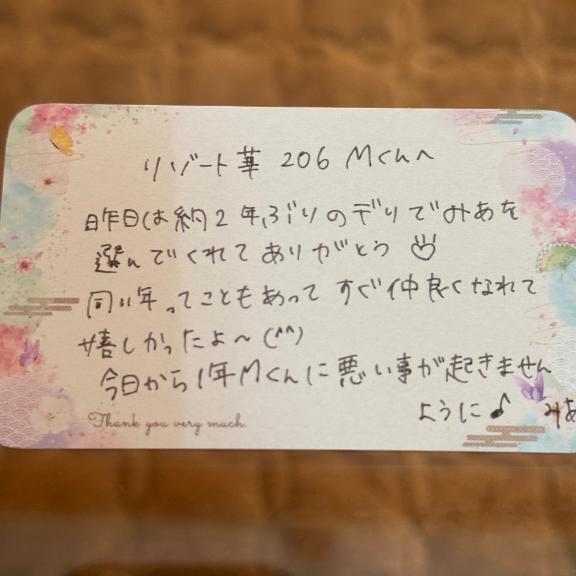 リゾート華 206 Mくんへ
昨日は約2年ぶりのデリでみあを
選んでくれてありがとう
同い年ってこともあってすぐ仲良くなれて
嬉しかったよ〜(^^)
今日から1年Mくんに悪い事が起きません
ように♪ みあ
Thank you very much.